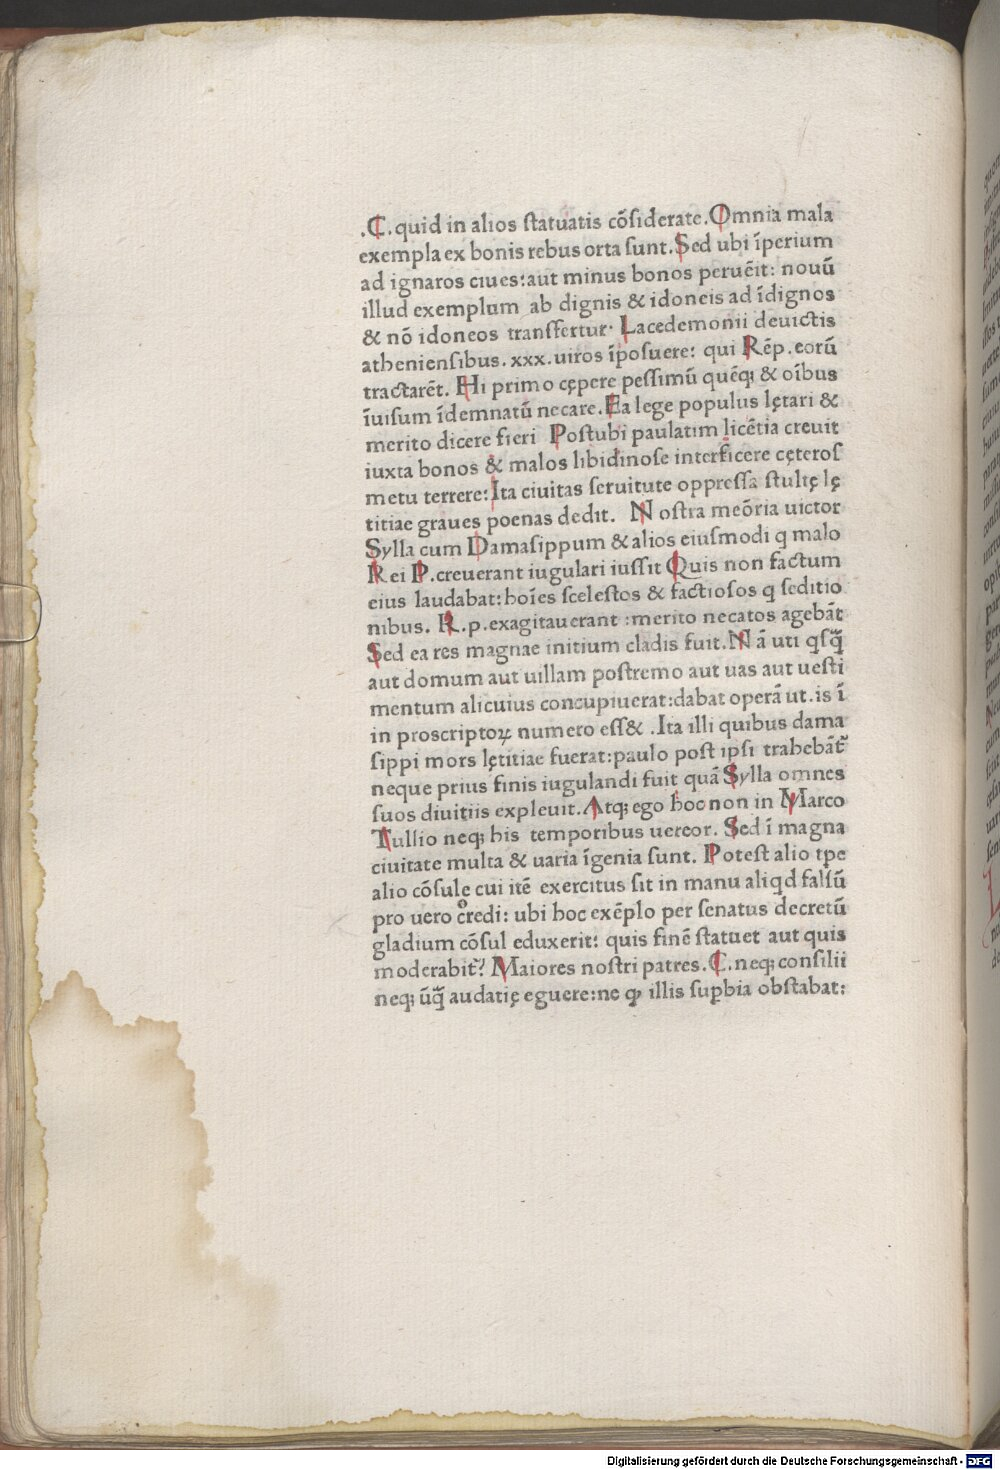 .C. quid in alios ſtatuatis cõſiderate. Omnia mala
exempla ex bonis rebus orta ſunt. Sed ubi ĩperium
ad ignaros ciues: aut minus bonos peruẽit: nouũ
illud exemplum ab dignis & idoneis ad ĩdignos
& nõ idoneos tranſfertur· Lacedemonii deuictis
athenienſibus. xxx. uiros ĩpoſuere: qui Rẽp. eorũ
tractarẽt. Hi primo cępere peſſimũ quẽq; & oĩbus
ĩuiſum ĩdemnatũ necare. Ea lege populus lętari &
merito dicere fieri Poſtubi paulatim licẽtia creuit
iuxta bonos & malos libidinoſe interficere cęteroſ
metu terrere: Ita ciuitas ſeruitute oppreſſa ſtultę lę
titiae graues poenas dedit. N oſtra meõria uictor
Sylla cum Damaſippum & alios eiuſmodi q malo
Rei P. creuerant iugulari iuſſit Quis non factum
eius laudabat: hoĩes ſceleſtos & factioſos q ſeditio
nibus. R. p. exagitauerant : merito necatos agebãt
Sed ea res magnae initium cladis fuit. N ã uti qſq̃
aut domum aut uillam poſtremo aut uas aut ueſti
mentum alicuius concupiuerat: dabat operã ut. is ĩ
in proscriptoꝝ numero eſſ& . Ita illi quibus dama
ſippi mors lętitiae fuerat: paulo poſt ipſi trahebãt᷑
neque prius finis iugulandi fuit quã Sylla omnes
ſuos diuitiis expleuit. Atq; ego hoc non in Marco
Tullio neq; his temporibus uereor. Sed ĩ magna
ciuitate multa & uaria ĩgenia ſunt. Poteſt alio tp̄e
alio cõſule cui itẽ exercitus ſit in manu aliqd falſũ
pro uero credi: ubi hoc exẽplo per ſenatus decretũ
gladium cõſul eduxerit: quis finẽ ſtatuet aut quis
moderabit᷑? Maiores noſtri patres. C. neq; conſilii
neq; ũq̃ audatię eguere: ne ꝙ illis ſuꝑbia obſtabat:
Digitalisierung gefördert durch die Deutsche Forschungsgemeinschaft - DFG